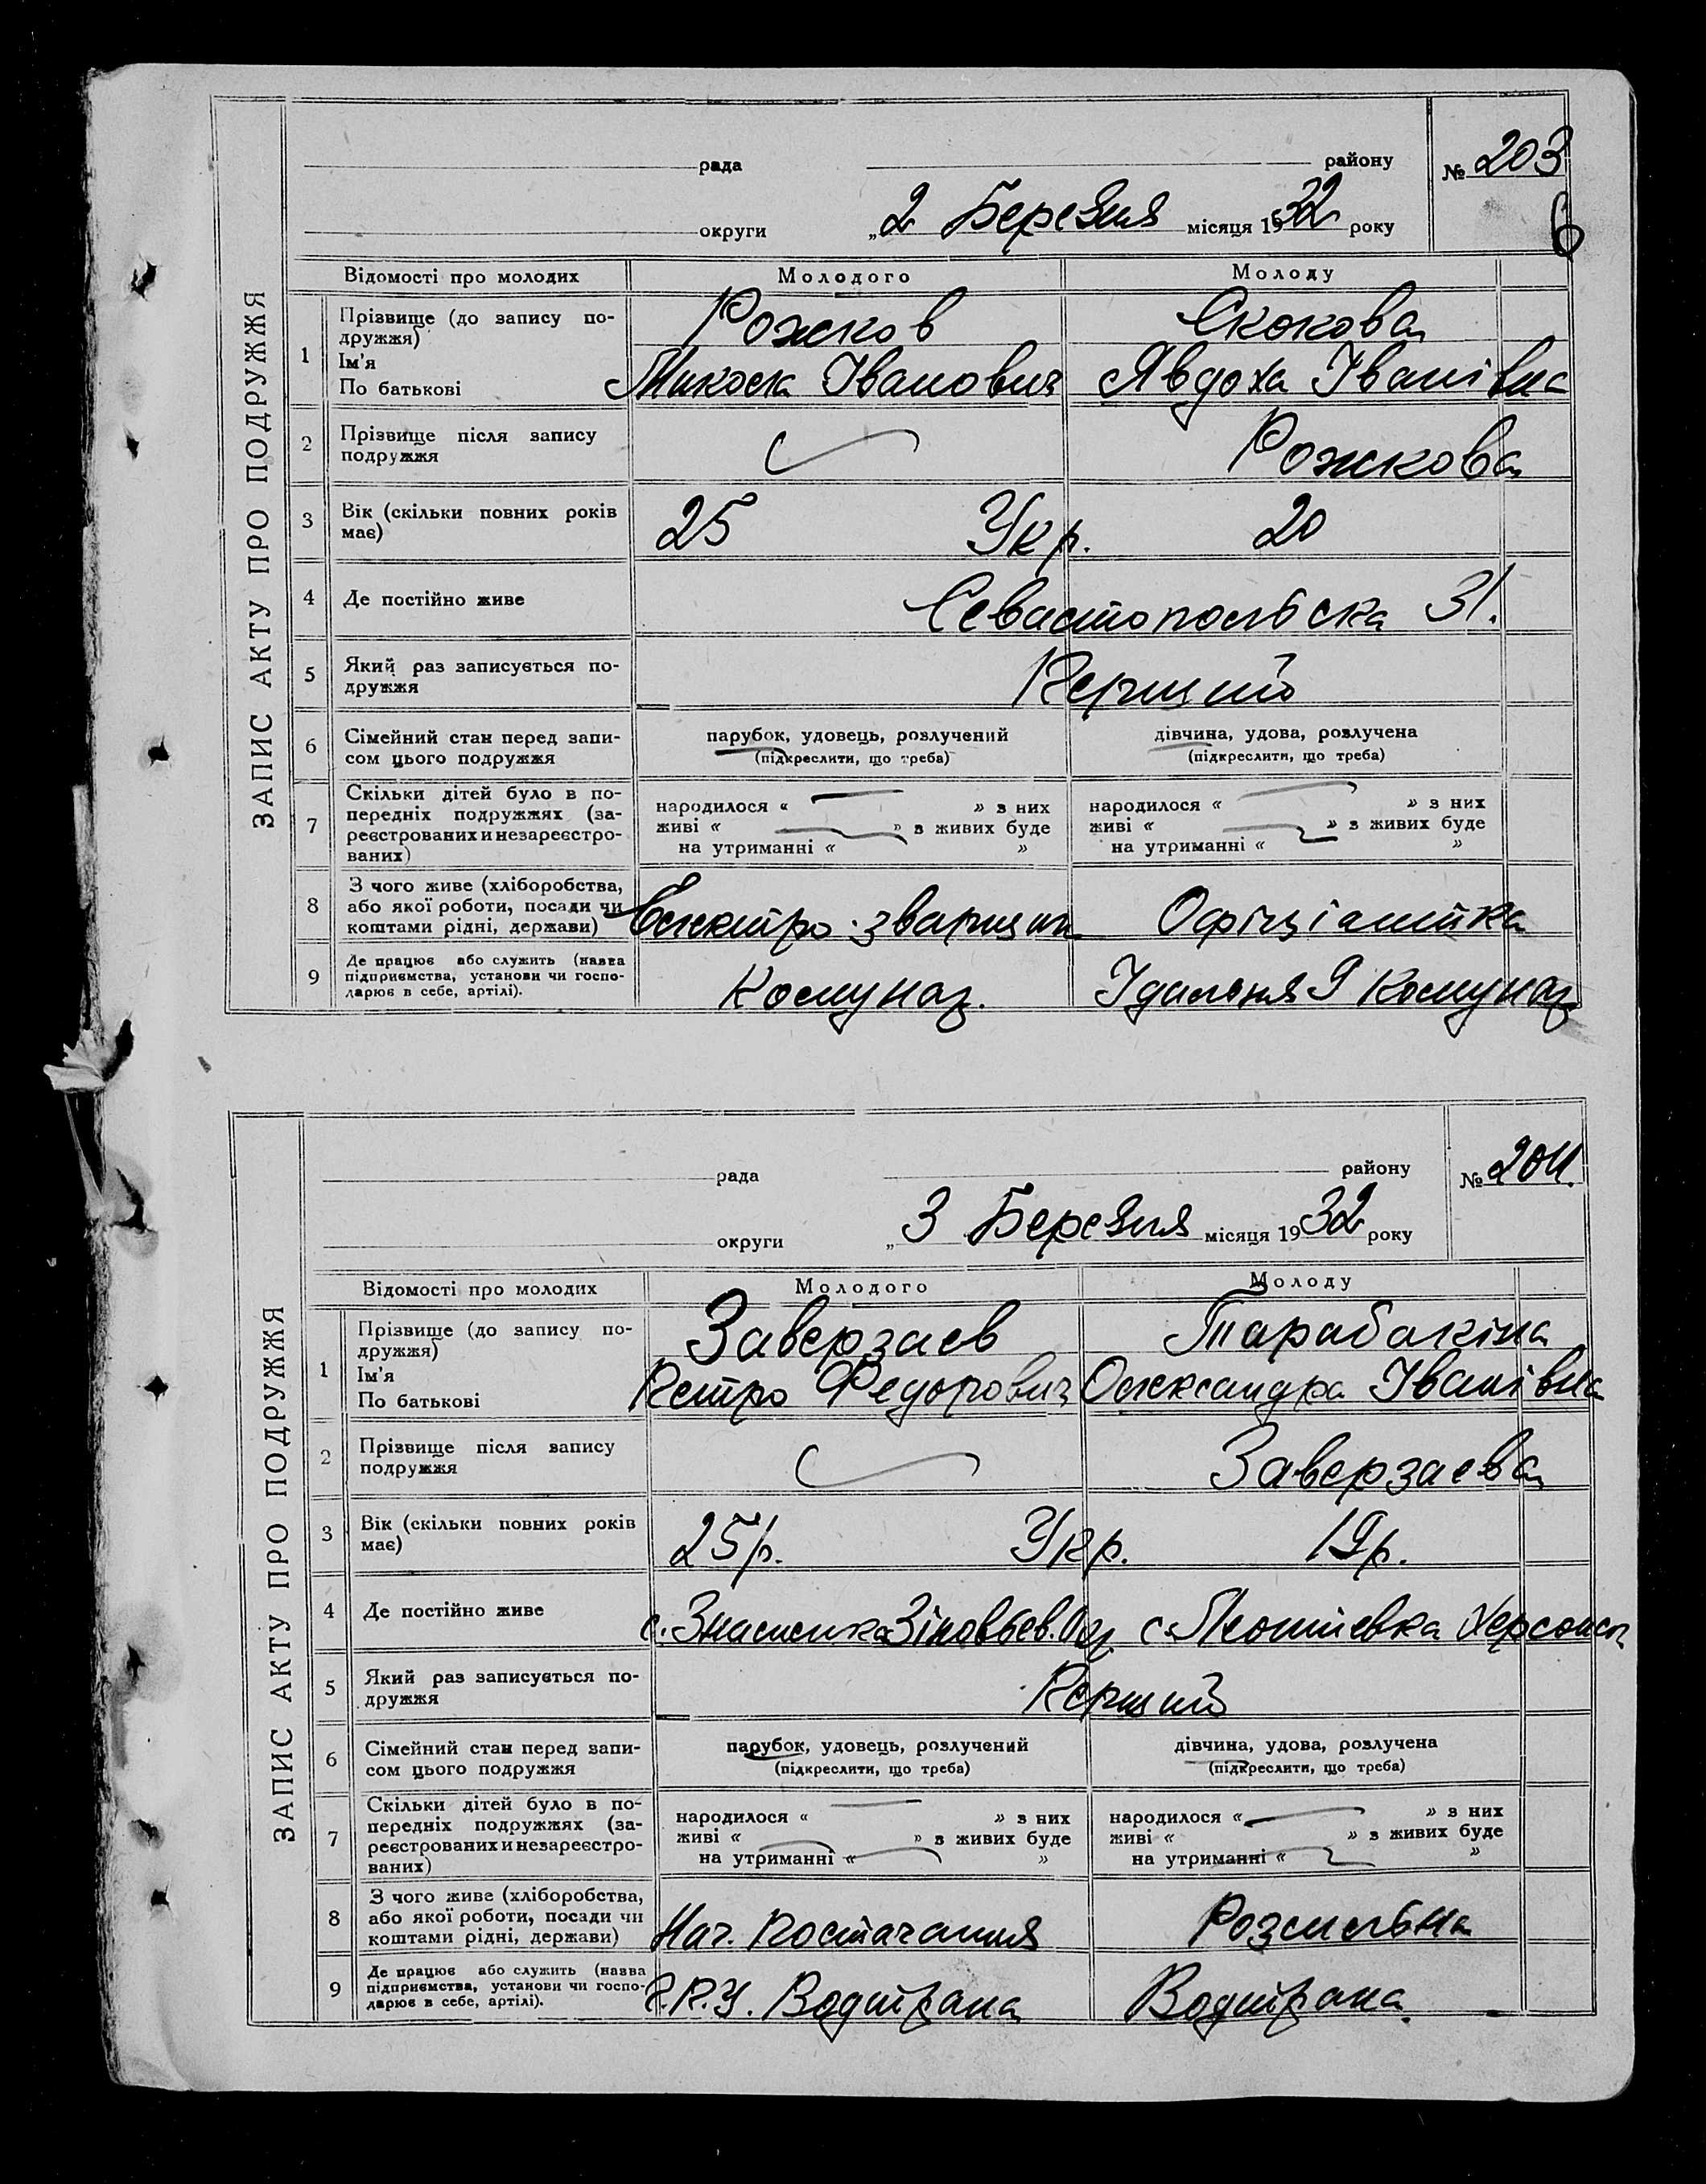 ЗАПИС АКТУ ПРО ПОДРУЖЖЯ
рада району № 203
6
округи „2 Березня місяця 1932 року
Відомості про молодих Молодого Молоду
1 Прізвище (до запису по- Рожков Скокова
дружжя)
Ім'я Микола Іванович Явдоха Іванівна
По батькові
2 Прізвище після запису Рожкова
подружжя
3 Вік (скільки повних років 25 Укр. 20
має)
4 Де постійно живе Севастопольська 31.
5 Який раз записується по- Перший
дружжя
6 Сімейний стан перед запи- парубок, удовець, розлучений дівчина, удова, розлучена
сом цього подружжя (підкреслити, що треба) (підкреслити, що треба)
7 Скільки дітей було в по- народилося « » з них народилося « » з них
передніх подружжях (за- живі « » з живих буде живі « » з живих буде
реєстрованих и незареєстро- на утриманні « » на утриманні « »
ваних)
8 З чого живе (хліборобства,
або якої роботи, посади чи Електро-зварщик Офіціантка
коштами рідні, держави)
9 Де працює або служить (назва
підприємства, установи чи госпо- Комунаг. Їдальня 9 Комунаг
дарює в себе, артілі).
ЗАПИС АКТУ ПРО ПОДРУЖЖЯ
рада району № 204.
округи „3 Березня місяця 1932 року
Відомості про молодих Молодого Молоду
1 Прізвище (до запису по- Заверзаев Тарабакіна
дружжя)
Ім'я Петро Федорович Олександра Іванівна
По батькові
2 Прізвище після запису Заверзаева
подружжя
3 Вік (скільки повних років 25 р. Укр. 19 р.
має)
4 Де постійно живе с. Знаменка Зіновьев. с. Херсонск
5 Який раз записується по- Перший
дружжя
6 Сімейний стан перед запи- парубок, удовець, розлучений дівчина, удова, розлучена
сом цього подружжя (підкреслити, що треба) (підкреслити, що треба)
7 Скільки дітей було в по- народилося « » з них народилося « » з них
передніх подружжях (за- живі « » з живих буде живі « » з живих буде
реєстрованих и незареєстро- на утриманні « » на утриманні « »
ваних)
8 З чого живе (хліборобства,
або якої роботи, посади чи Нач. Постачання Розсильна
коштами рідні, держави)
9 Де працює або служить (назва
підприємства, установи чи госпо- Водтрана Водтрана
дарює в себе, артілі).